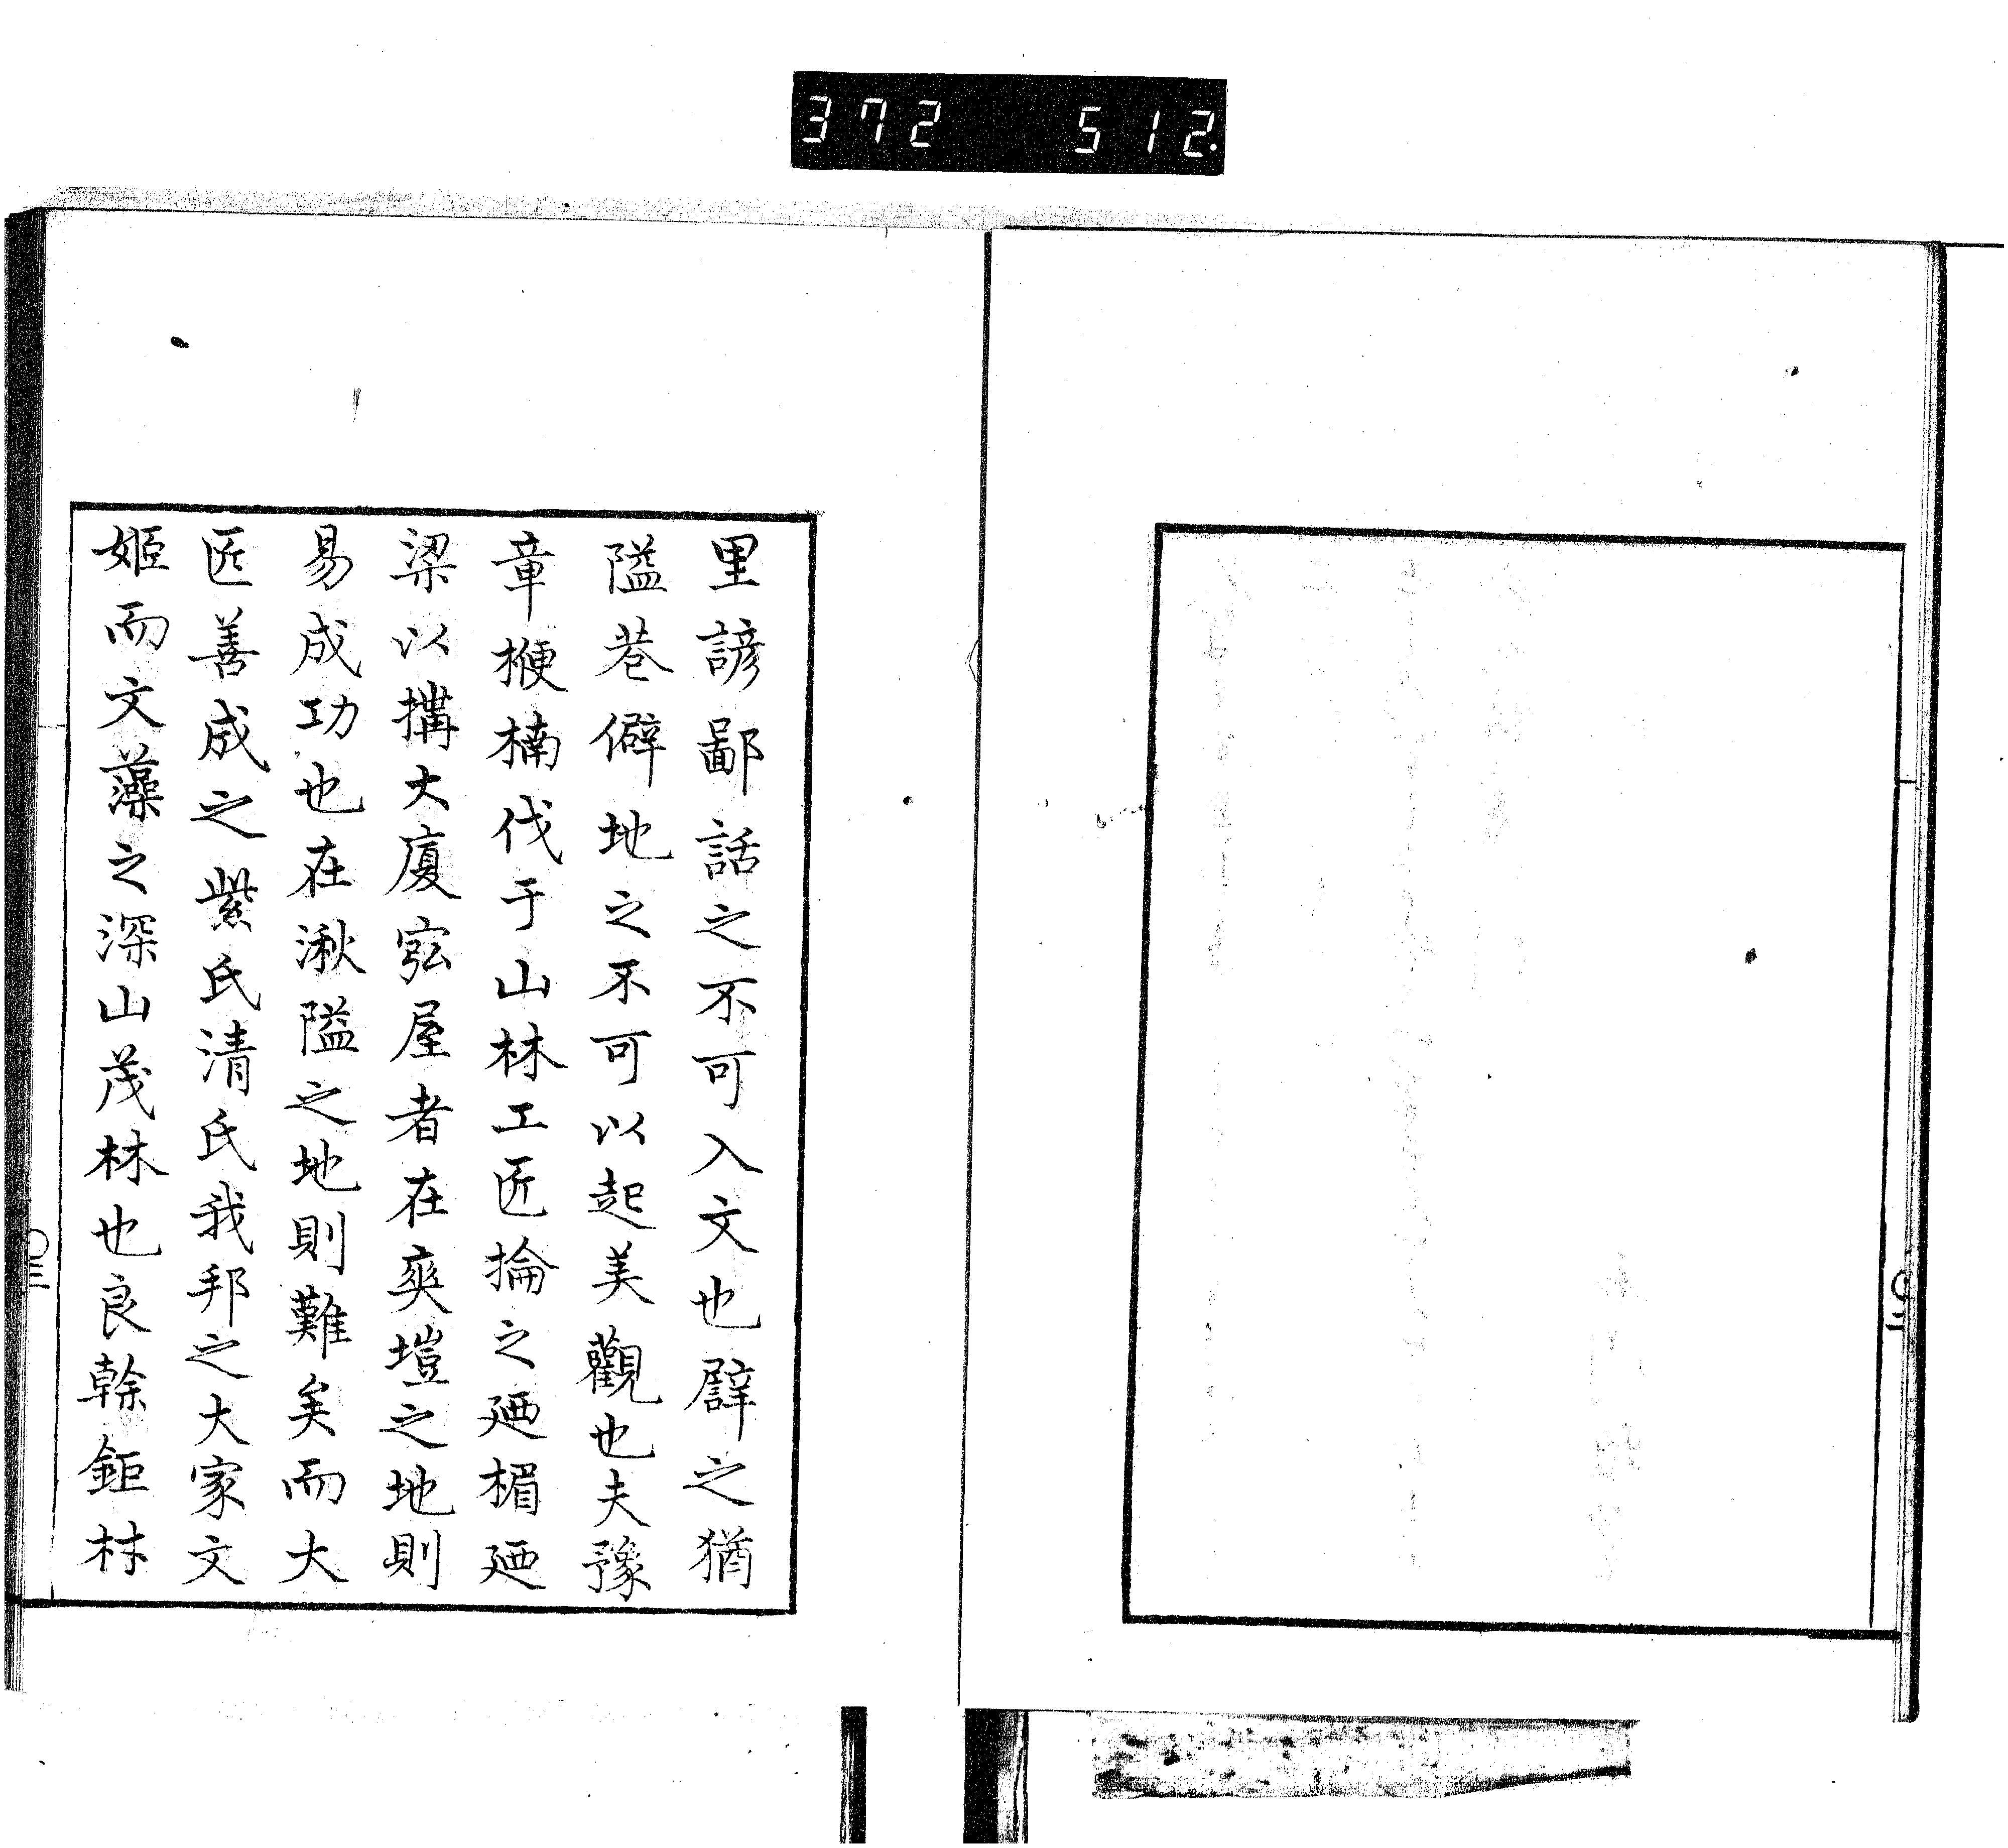 372 512.
里諺鄙話之不可入文也譬之猶
隘巷僻地之不可以起美觀也夫豫
章楩楠伐于山林工匠掄之廼楣廼
梁以搆大廈宏屋者在爽塏之地則
易成功也在湫隘之地則難矣而大
匠善成之紫氏清氏我邦之大家文
姬而文藻之深山茂林也良榦鉅材
〇三
〇三